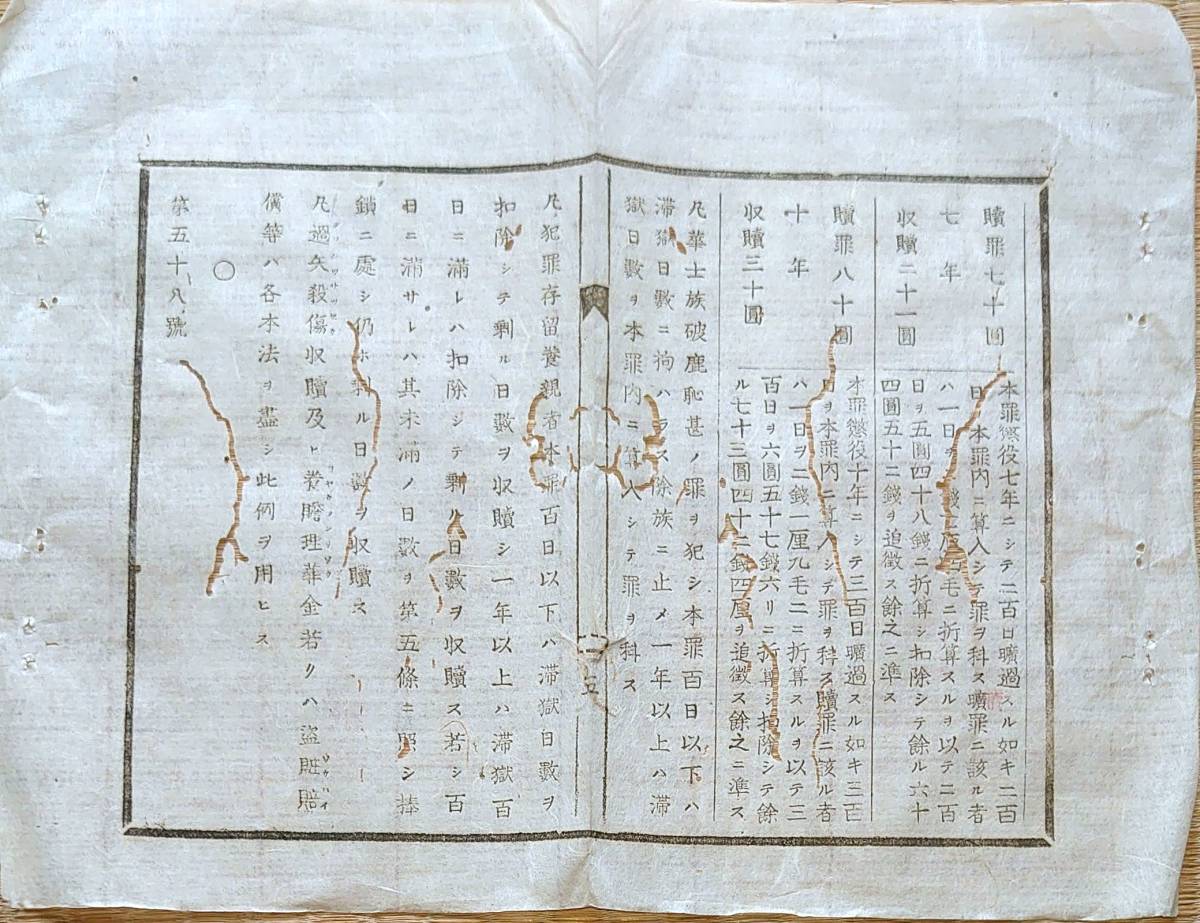 贖罪七十圓
七年
収贖二十一圓
本罪懲役七年ニシテ二百日曠過スル如キ二百
日ヲ本罪内ニ算入シテ罪ヲ科ス贖罪ニ該ル者
ハ一日ヲ 錢二 毛ニ折算スルヲ以テ二百
日ヲ五圓四十八錢ニ折算シ扣除シテ餘ル六十
四圓五十二錢ヲ追徴ス餘之ニ準ス
贖罪八十圓
十年
収贖三十圓
本罪懲役十年ニシテ三百日曠過スル如キ三百
日ヲ本罪内ニ算入シテ罪ヲ科ス贖罪ニ該ル者
ハ一日ヲ二錢一厘九毛二ニ折算スルヲ以テ三
百日ヲ六圓五十七錢六リニ折算シ扣除シテ餘
ル七十三圓四十二錢四厘ヲ追徴ス餘之ニ準ス
凡華士族破廉恥甚ノ罪ヲ犯シ本罪百日以下ハ
滞獄日數ニ拘ハラス除族ニ止メ一年以上ハ滞
獄日數ヲ本罪内ニ算入シテ罪ヲ科ス
五
凡犯罪存留養親者本罪百日以下ハ滞獄日數ヲ
扣除シテ剰ル日數ヲ収贖シ一年以上ハ滞獄百
日ニ滿レハ扣除シテ剰ル日數ヲ収贖ス若シ百
日ニ滿サレハ其未滿ノ日數ヲ第五條ニ照シ棒
鎖ニ處シ仍ホ剰ル日數ヲ収贖ス
凡過失殺傷収贖及ヒ養贍埋葬金若クハ盗賍賠
償等ハ各本法ヲ盡シ此例ヲ用ヒス
○
第五十八號